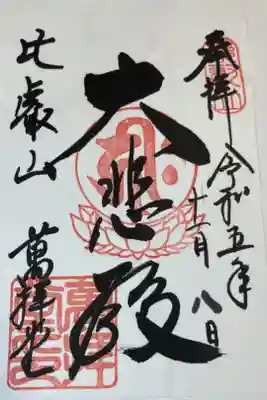 奉拝 令和五年
十二月八日
大悲殿
比叡山
萬拜堂